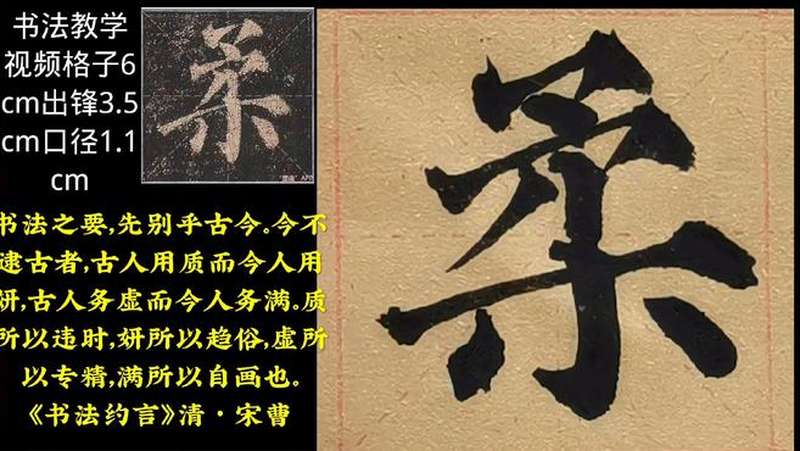 书法教学
视频格子6
cm出锋3.5
cm口径1.1
cm
柔
书法之要,先别乎古今。今不
逮古者,古人用质而今人用
妍,古人务虚而今人务满。质
所以违时,妍所以趋俗,虚所
以专精,满所以自画也。
《书法约言》清·宋曹
柔